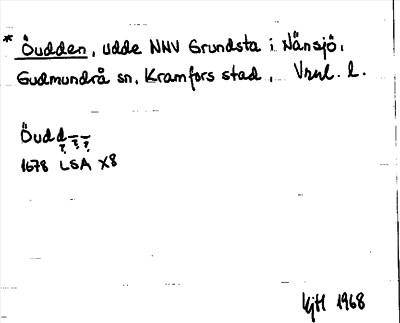 * Öudden, udde NNV Grundsta i Nänsjö,
Gudmundrå sn, Kramfors stad, Vrnl. l.
Öudd---
? ? ?
1678 LSA X8
KjH 1968